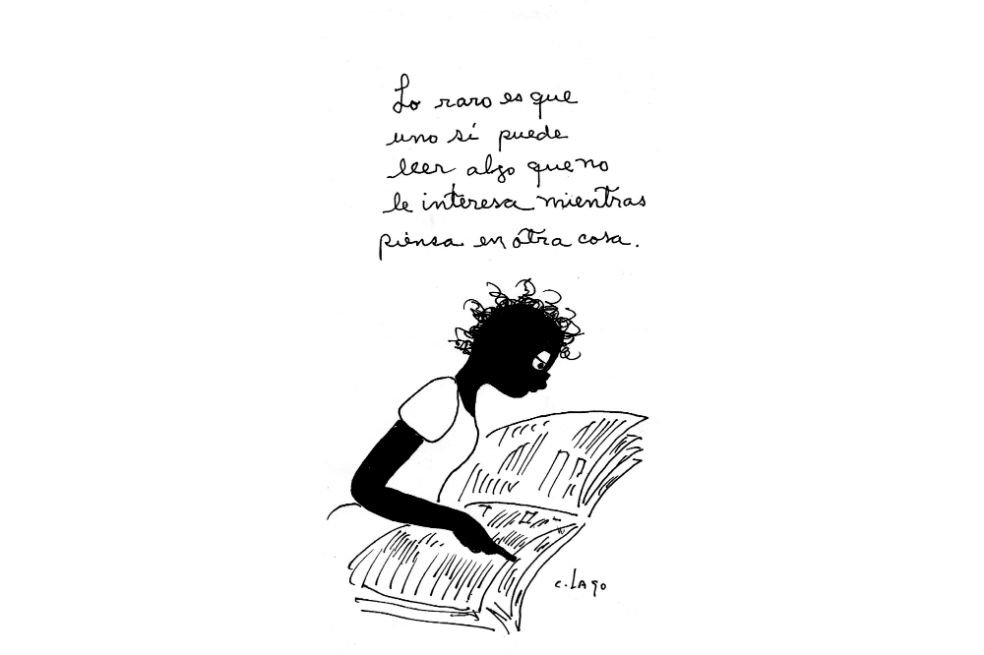 Lo raro es que
uno sí puede
leer algo que no
le interesa mientras
piensa en otra cosa.
C. LAGO